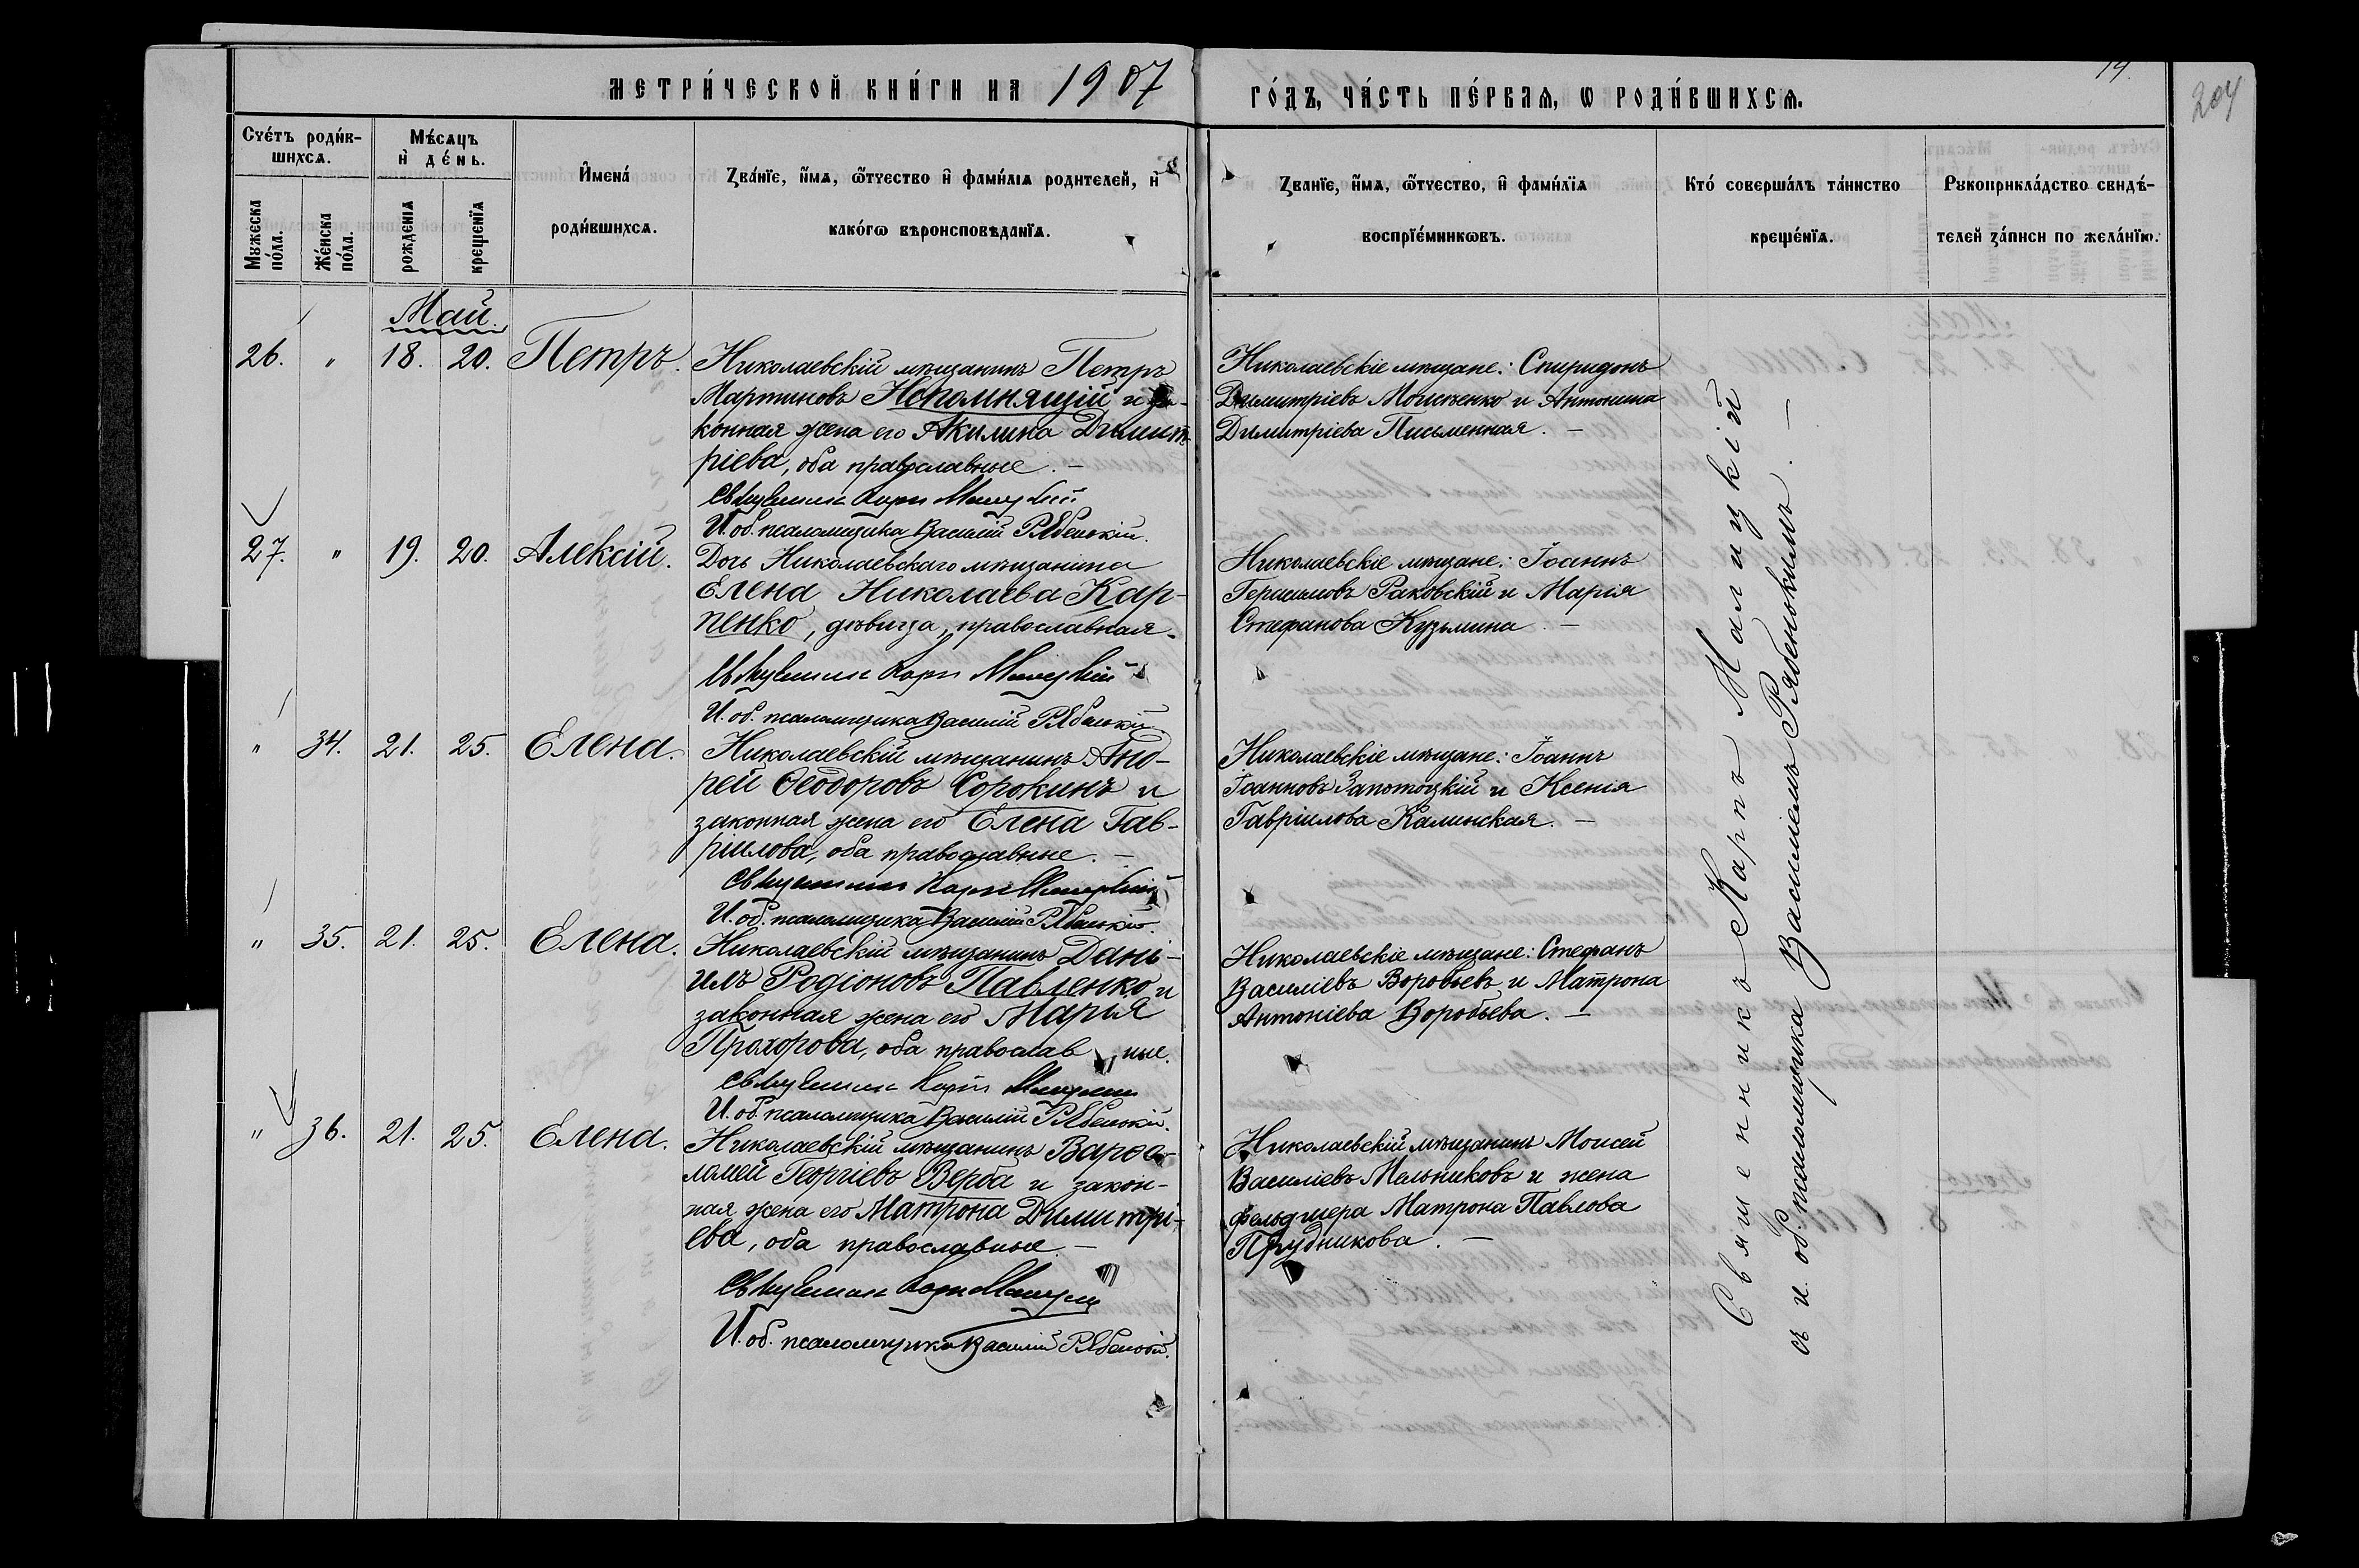 МЕТРИ́ЧЕСКОЙ КНИ́ГИ НА 1907
ГО́ДЪ, ЧА́СТЬ ПЕ́РВАЯ, Ѡ РОДИ́ВШИХСѦ.
14.
204
Счéтъ роди́в-
шихсѧ.
Мꙋжеска по́ла.
Же́нска по́ла.
Мѣ́сѧцъ
и҆ де́нь.
рожденїѧ
крещенїѧ
И҆мена́
роди́вшихсѧ.
Зва́нїе, и҆́мѧ, ѻ҆́тчество и҆ фами́лїѧ родителей, и҆
како́гѡ вѣроисповѣданїѧ.
Званїе, и҆́мѧ, ѻ҆́тчество, и҆ фами́лїѧ
воспрїе́мникѡвъ.
Кто́ соверша́лъ та́инство
креще́нїѧ.
Рꙋкоприкла́дство свидѣ́-
телей за́писи по жела́нїю.
Май.
26. " 18. 20. Петръ.
Николаевскій мѣщанинъ Петръ
Мартиновъ Непомнящій и за-
конная жена его Акилина Димит-
ріева, оба православные. —
Священникъ Карпъ Малицкій
И. об. псаломщика Василій Рябенькій.
Николаевскіе мѣщане: Спиридонъ
Димитріевъ Моисеенко и Антонина
Димитріева Письменная. —
27. " 19. 20. Алексій.
Дочь Николаевскаго мѣщанина
Елена Николаева Кар-
пенко, дѣвица, православная.
Священникъ Карпъ Малицкій
И. об. псаломщика Василій Рябенькій
Николаевскіе мѣщане: Іоаннъ
Герасимовъ Раковскій и Марія
Стефанова Кузьмина. —
" 34. 21. 25. Елена.
Николаевскій мѣщанинъ Анд-
рей Ѳеодоровъ Сорокинъ и
законная жена его Елена Гав-
ріилова, оба православные. —
Священникъ Карпъ Малицкій
И. об. псаломщика Василій Рябенькій.
Николаевскіе мѣщане: Іоаннъ
Іоанновъ Запотоцкій и Ксенія
Гавріилова Калинская. —
" 35. 21. 25. Елена.
Николаевскій мѣщанинъ Дані-
илъ Родіоновъ Павленко и
законная жена его Марія
Прохорова, оба православ ные.
Священникъ Карпъ Малицкій
И. об. псаломщика Василій Рябенькій.
Николаевскіе мѣщане: Стефанъ
Василіевъ Воробьевъ и Матрона
Антоніева Воробьева. —
" 36. 21. 25. Елена.
Николаевскій мѣщанинъ Варѳо-
ломей Георгіевъ Верба и закон-
ная жена его Матрона Димитрі-
ева, оба православные. —
Священникъ Карпъ Малицкій
И. об. псаломщика Василій Рябенькій.
Николаевскій мѣщанинъ Моисей
Василіевъ Мельниковъ и жена
фельдшера Матрона Павлова
Прудникова. —
Священникъ Карпъ Малицкій
съ и. об. псаломщика Василіемъ Рябенькимъ. —